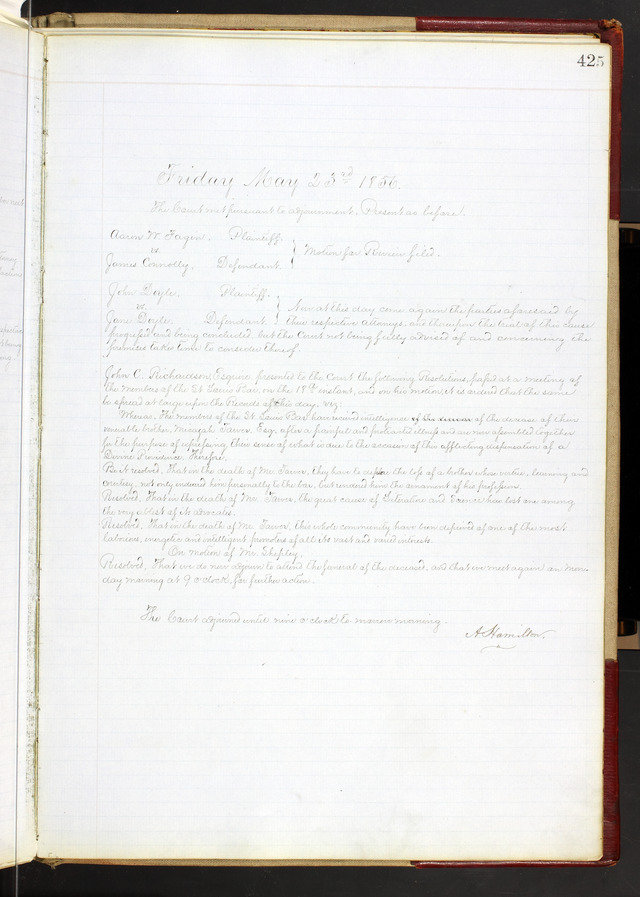 425
Friday May 23rd 1856.
The Court met pursuant to adjournment. Present as before.
Aaron W. Fagin. Plaintiff.
vs.
James Connolly. Defendant.
Motion for Review filed.
John Doyle. Plaintiff.
vs.
Jane Doyle. Defendant.
Now at this day come again the parties aforesaid by
their respective attorneys, and thereupon the trial of this cause
progressed and being concluded, but the Court not being fully advised of and concerning the
premises takes time to consider thereof.
John C. Richardson, Esquire, presented to the Court the following Resolutions, passed at a meeting of
the members of the St Louis Bar, on the 18th instant, and on his motion, it is ordered that the same
be spread at large upon the Records of this day, viz:
Whereas, The members of the St Louis Bar, have received intelligence of the decease of their
venerable brother, Esq. after a painful and protracted illness and are now assembled together
for the purpose of expressing their sense of what is due to the occasion of this afflicting dispensation of a
Divine Providence, Therefore,
Be it resolved, That in the death of Mr. they have to deplore the loss of a brother whose virtues, learning and
not only endeared him personally to the bar, but rendered him the ornament of his profession.
Resolved, That in the death of Mr. the great cause of Literature and Science has lost one among
the very ablest of its advocates.
Resolved, That in the death of Mr. this whole community have been deprived of one of the most
laborious, energetic and intelligent promoters of all its vast and varied interests.
On motion of Mr. Shepley.
Resolved, That we do now adjourn to attend the funeral of the deceased, and that we meet again on Mon-
day morning at 9 o'clock, for further action.
The Court adjourned until nine o'clock to morrow morning.
A. Hamilton.